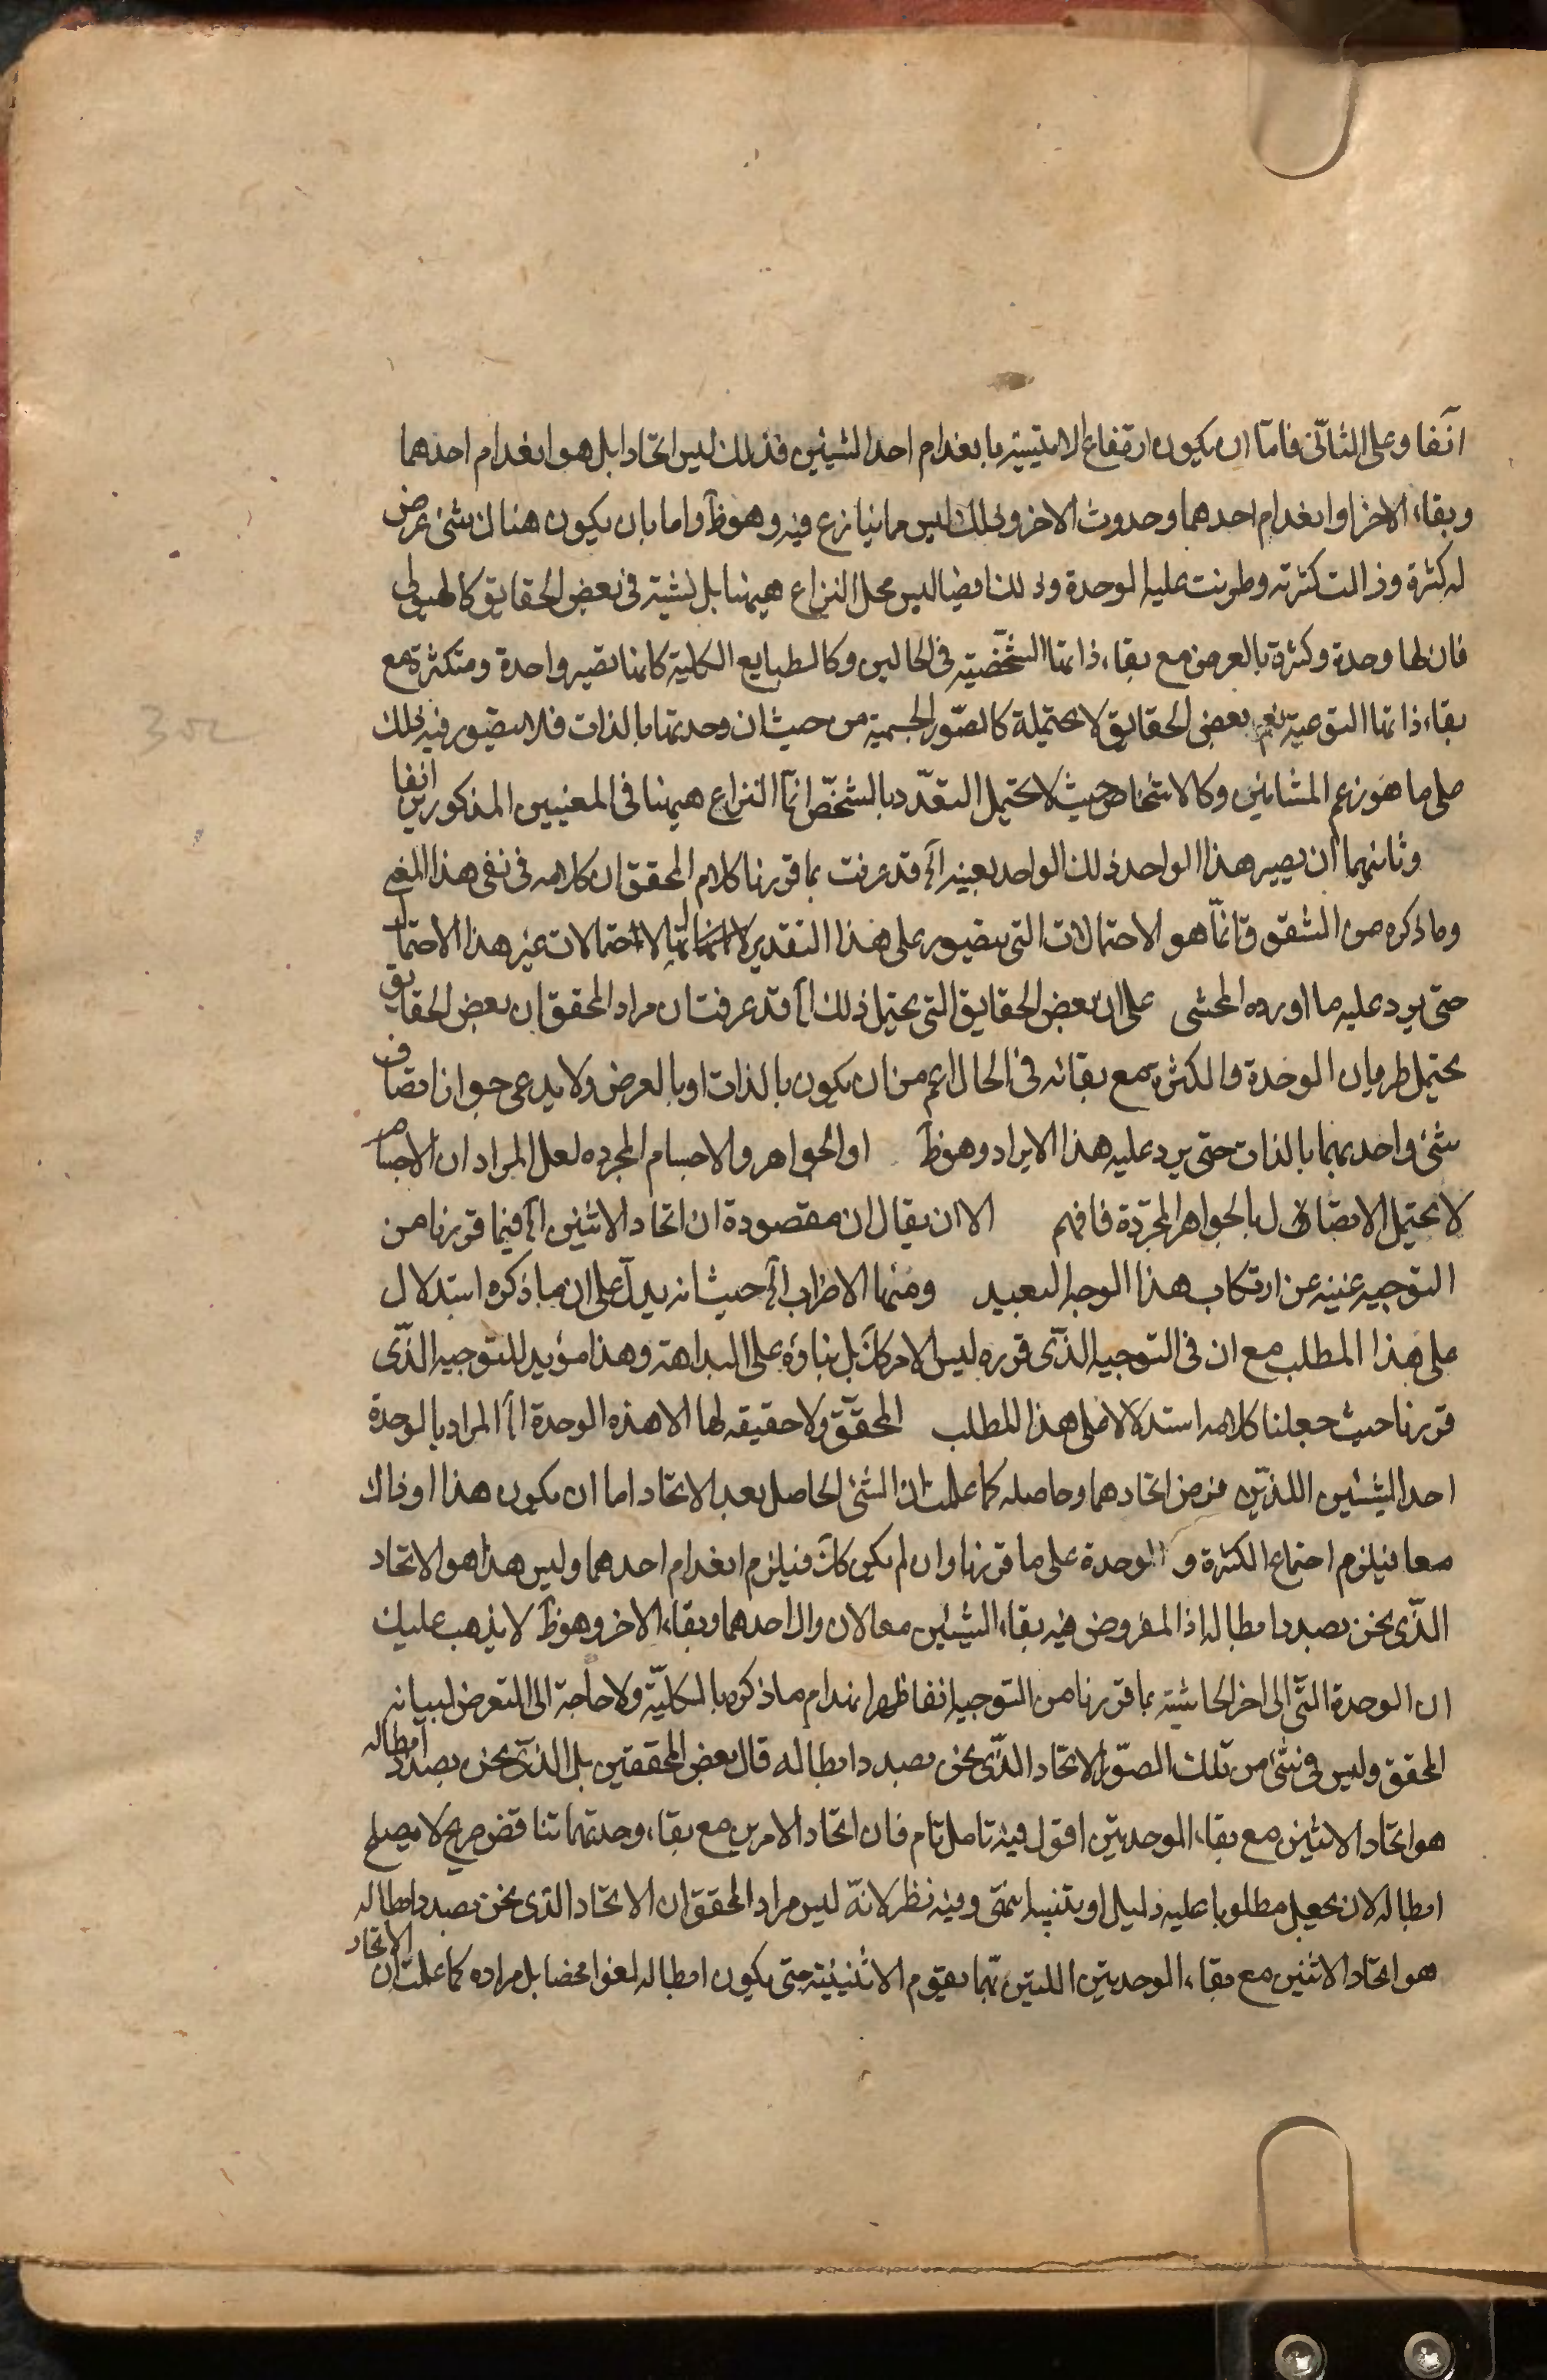 آنفا وعلى الثانى فاما ان يكون ارتفاع الاثنينية بانعدام احد الشيئين فذلك ليس اتحادا بل هو انعدام احدهما
وبقاء الاخر او انعدام احدهما وحدوث الاخر وذلك ليس مما ينازع فيه وهو ظ واما بان يكون هناك شئ عرض
له كثرة وزالت كثرته وطرئت عليه الوحدة وذلك ايضا ليس محل النزاع هيهنا بل نثبته فى بعض الحقايق كالهيولى
فان لها وحدة وكثرة بالعرض مع بقاء ذاتها الشخصية فى الحالين وكالطبايع الكلية فانها تصير واحدة ومتكثرة مع
بقاء ذاتها النوعية نعم بعض الحقايق لا يحتمله كالصور الجسمية من حيث ان وحدتها بالذات فلا يتصور فيه ذلك
على ما هو زعم المشائين وكالاشخاص حيث لا يحتمل التعدد بالشخص انما النزاع هيهنا فى المعنيين المذكورين انفا
وثانيهما ان يصير هذا الواحد ذلك الواحد بعينه الخ قد عرفت بما قررنا كلام المحقق ان كلامه فى نفى هذا المعنى
وما ذكره من الشقوق انما هو الاحتمالات التى يتصور على هذا التقدير لا انها الاحتمالات غير هذا الاحتمال
حتى يرد عليه ما اورده المحشى على ان بعض الحقايق التى يحتمل ذلك الخ قد عرفت ان مراد المحقق ان بعض الحقايق
يحتمل طريان الوحدة والكثرة مع بقائه فى الحال اعم من ان يكون بالذات او بالعرض ولا يدعى جواز اتصاف
شئ واحد بهما بالذات حتى يرد عليه هذا الايراد وهو ظ او الجواهر والاجسام المجرده لعل المراد ان الاجسام
لا يحتمل الاتصال بالجواهر المجردة فافهم الا ان يقال ان مقصودة ان اتحاد الاثنين الخ فيما قررنا من
التوجيه غنية عن ارتكاب هذا الوجه البعيد ومنها الاضراب الخ حيث انه يدل على ان ما ذكره استدلال
على هذا المطلب مع ان فى التوجيه الذى قرره ليس الامر كك بل بناؤه على البداهة وهذا مؤيد للتوجيه الذى
قررنا حيث جعلنا كلامه استدلالا على هذا المطلب المحقق ولا حقيقه لها الا هذه الوحدة الخ المراد بالوحدة
احد الشيئين اللذين فرض اتحادهما وحاصله كما علمت ان الشئ الحاصل بعد الاتحاد اما ان يكون هذا او ذاك
معا فيلزم اجتماع الكثرة و الوحدة على ما قررنا وان لم يكن كك فيلزم انعدام احدهما وليس هذا هو الاتحاد
الذى نحن بصدد ابطاله اذ المفروض فيه بقاء الشيئين معا لا زوال احدهما وبقاء الاخر وهو ظ لا يذهب عليك
ان الوحدة التى الى اخر الحاشية بما قررنا من التوجيه انفا ظهر انهدام ما ذكره بالكلية ولا حاجة الى التعرض لبيانه
المحقق وليس فى شئ من تلك الصور الاتحاد الذى نحن بصدد ابطاله قال بعض المحققين بل الذى نحن بصدد ابطاله
هو اتحاد الاثنين مع بقاء الوحدتين اقول فيه تامل تام فان اتحاد الامرين مع بقاء وحدتهما تناقض صريح لا يصلح
ابطاله لان يجعل مطلوبا عليه دليل او تنبيه انتهى وفيه نظر لانه ليس مراد المحقق ان الاتحاد الذى نحن بصدد ابطاله
هو اتحاد الاثنين مع بقاء الوحدتين اللتين بهما يقوم الاثنينية حتى يكون ابطاله لغوا محضا بل مراده كما علمت ان الاتحاد